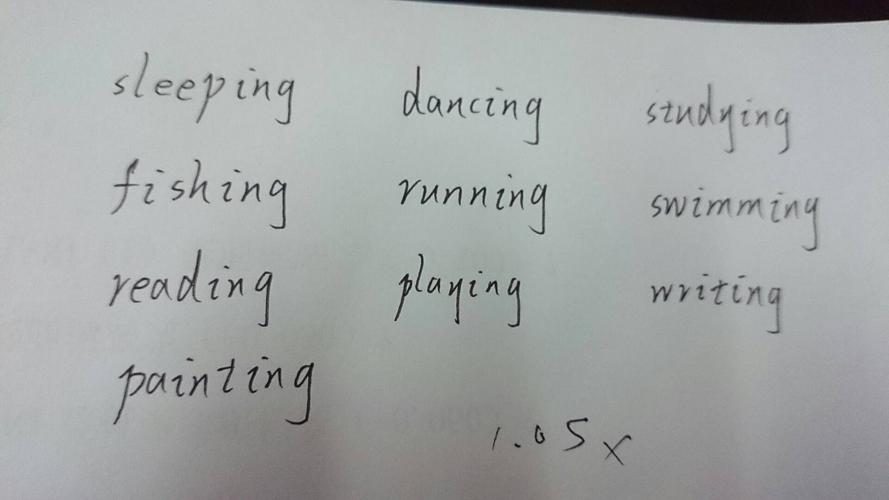 sleeping dancing studying
fishing running swimming
reading playing writing
painting
1.05x